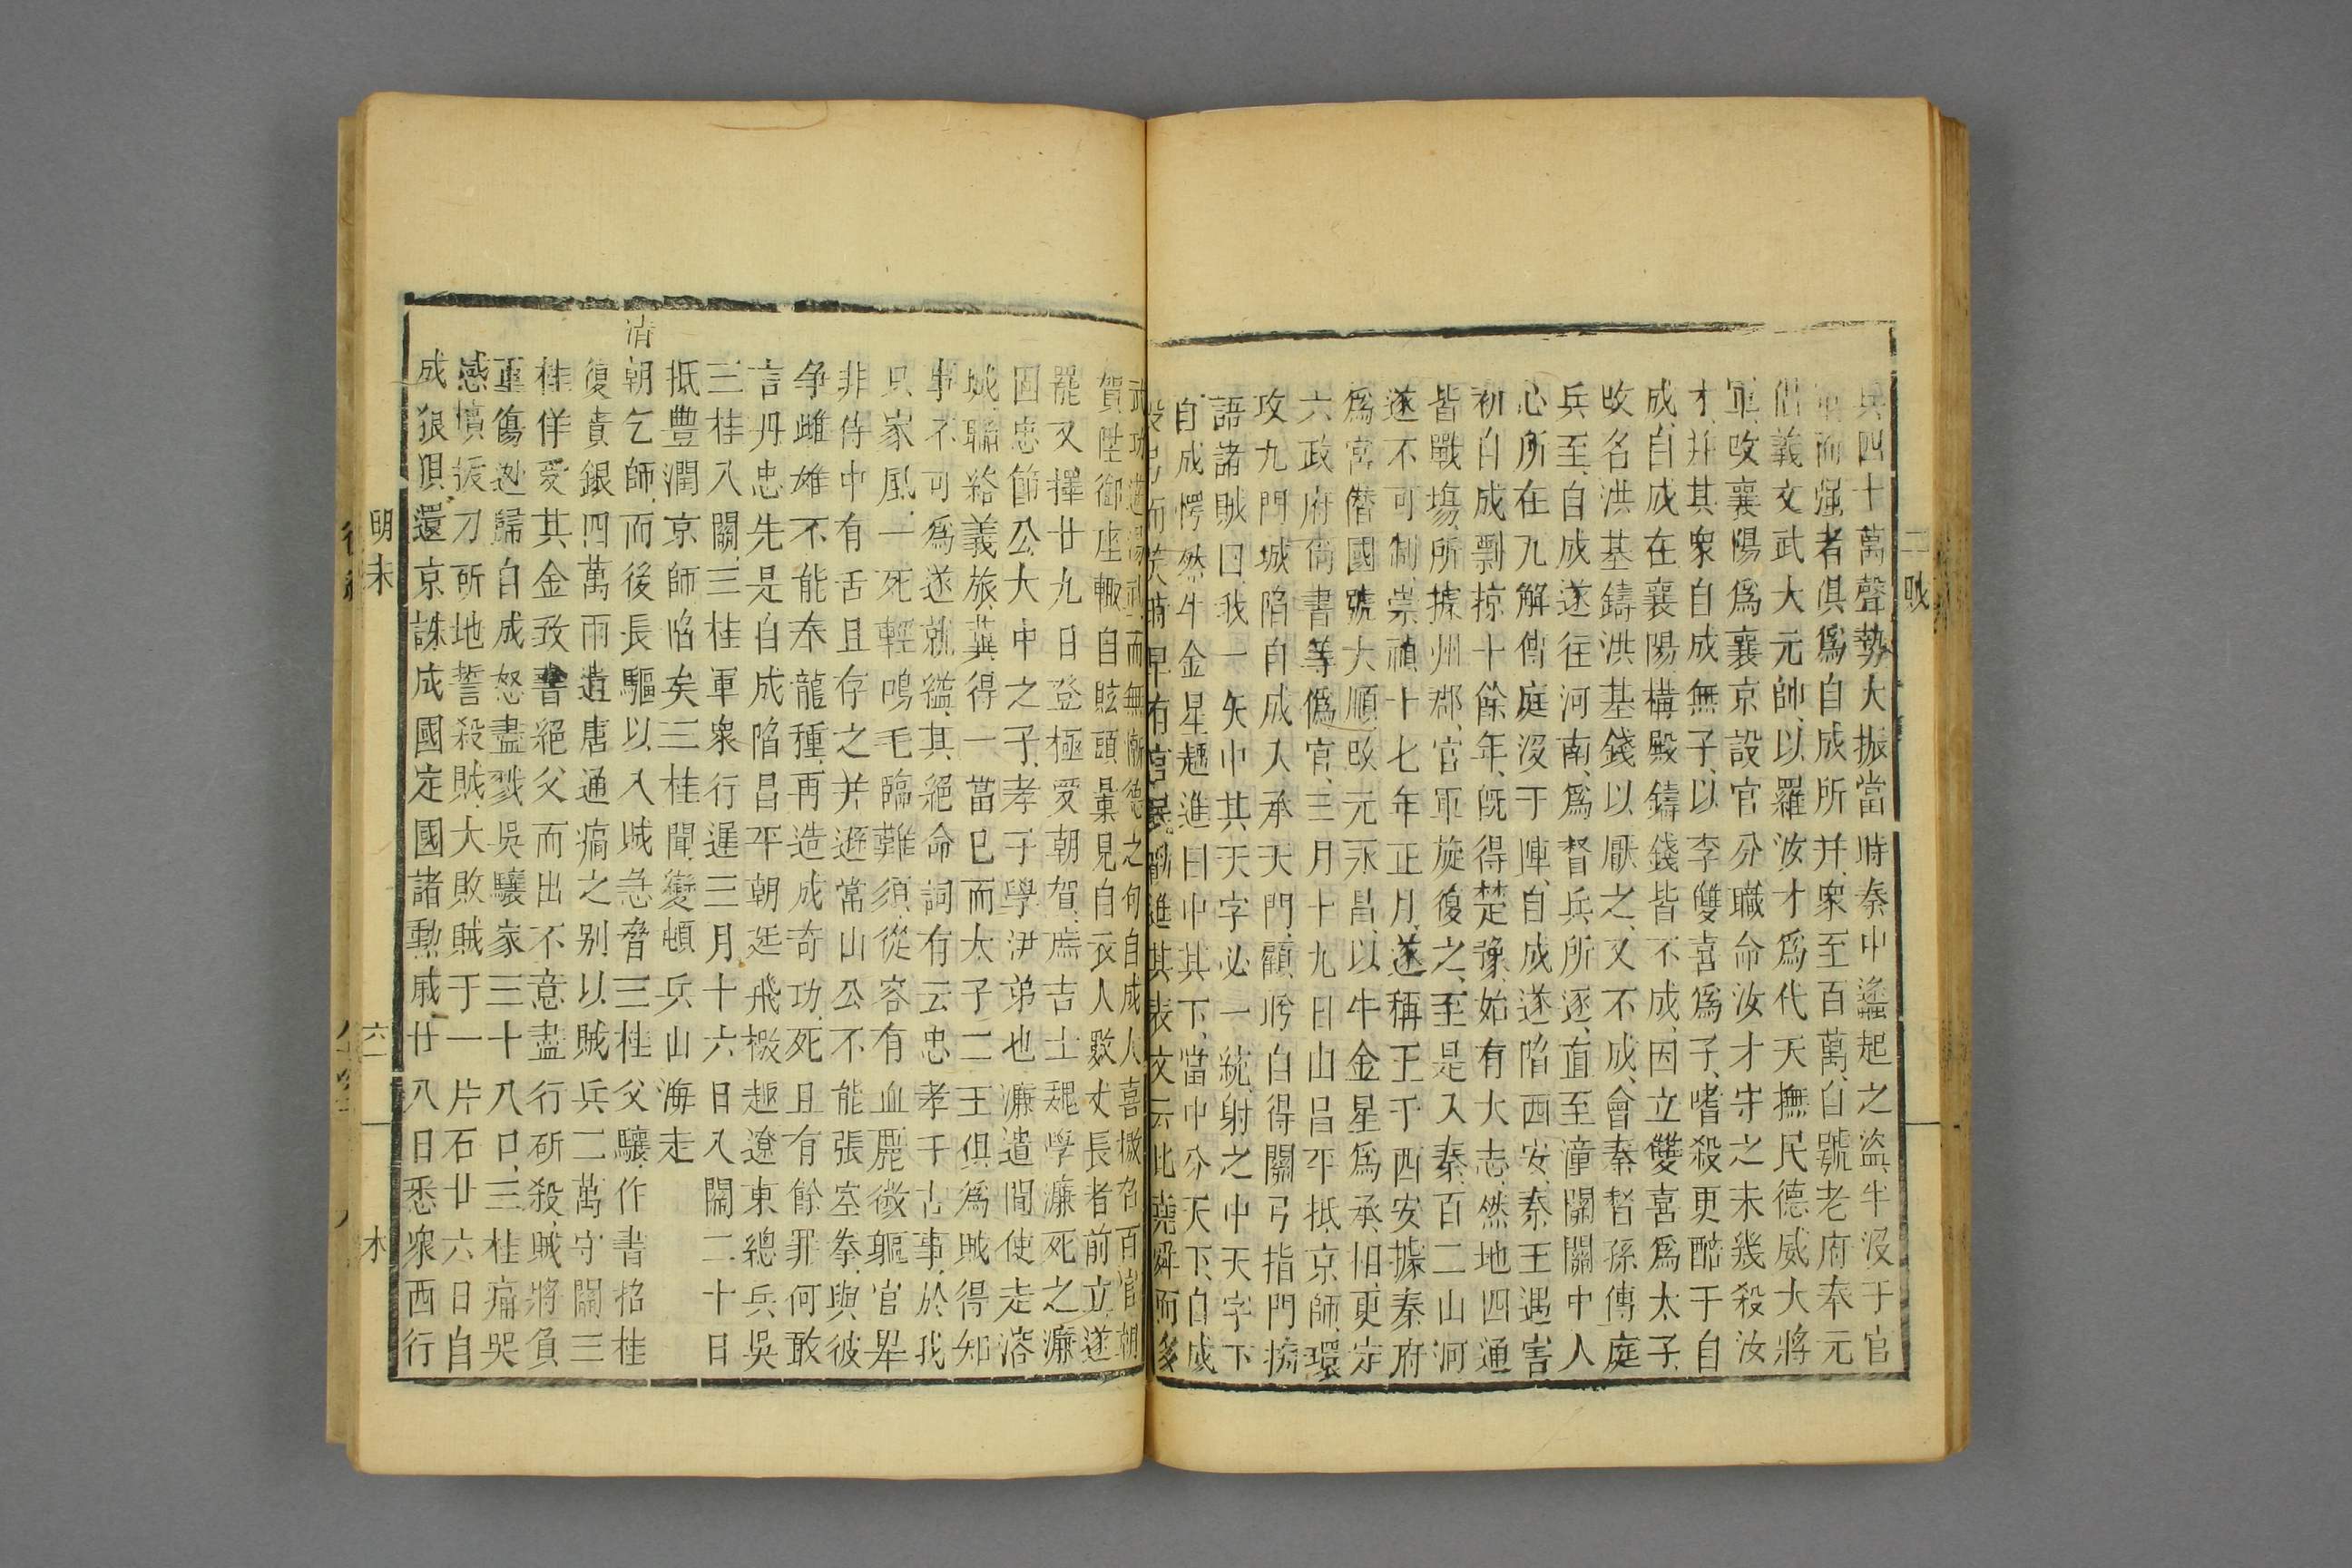 兵四十萬聲勢大振當時秦中蠭起之盜半沒于官
軍而强者俱爲自成所并衆至百萬自號老府奉元
倡義文武大元帥以羅汝才爲代天撫民德威大將
軍攺襄陽爲襄京設官分職命汝才守之未幾殺汝
才并其衆自成無子以李雙喜爲子嗜殺更酷于自
成自成在襄陽構殿鑄錢皆不成因立雙喜爲太子
攺名洪基鑄洪基錢以厭之又不成會秦督孫傳庭
兵至自成遂往河南爲督兵所逐直至潼關關中人
心所在瓦解傳庭沒于陣自成遂陷西安秦王遇害
初自成剽掠十餘年旣得楚豫始有大志然地四通
皆戰塲所據州郡官軍旋復之至是入秦百二山河
遂不可制崇禎十七年正月遂稱王于西安據秦府
爲宮僭國號大順攺元永昌以牛金星爲承相更定
六政府尙書等僞官三月十九日山呂平抵京師環
攻九門城陷自成入承天門顧盻自得關弓指門
語諸賊曰我一矢中其天字必一統射之中天字下
自成愕然牛金星趨進曰中其下當中分天下自成
投弓而笑時早有宮民勸進其表文云此堯舜而多
武功邁湯武而無慚德之句自成人喜檄召百官朝
賀陞御座輙自眩頭暈見白衣人數丈長者前立遂
罷又擇廿九日登極受朝賀庶吉士魏學濂死之濂
固忠節公大中之子孝子學洢弟也濂遣間使走溶
城聯給義旅兾得一當已而太子二王俱爲賊得知
事不可爲遂就縊其絕命詞有云忠孝千古事於我
只家風一死輕鳴毛臨難須從容有血麗微軀官卑
非侍中有舌且存之并遊常山公不能張空拳與彼
争雌雄不能奉龍種再造成奇功死且有餘罪何敢
言丹忠先是自成陷昌平朝廷飛檄趣遼東總兵吳
三桂入關三桂軍衆行遲三月十六日入關二十日
抵豐潤京師陷矣三桂聞變頓兵山海走
清朝乞師而後長驅以入賊急脅三桂父驤作書招桂
復賁銀四萬兩遣唐通痛之别以賊兵二萬守關三
桂佯受其金致書絕父而出不意盡行斫殺賊將負
重傷迯歸自成怒盡戮吳驤家三十八口三桂痛哭
感憤拔刀斫地誓殺賊大敗賊于一片石廿六日自
成狠狽還京誅成國定國諸勲戚廿八日悉衆西行
明末
六一